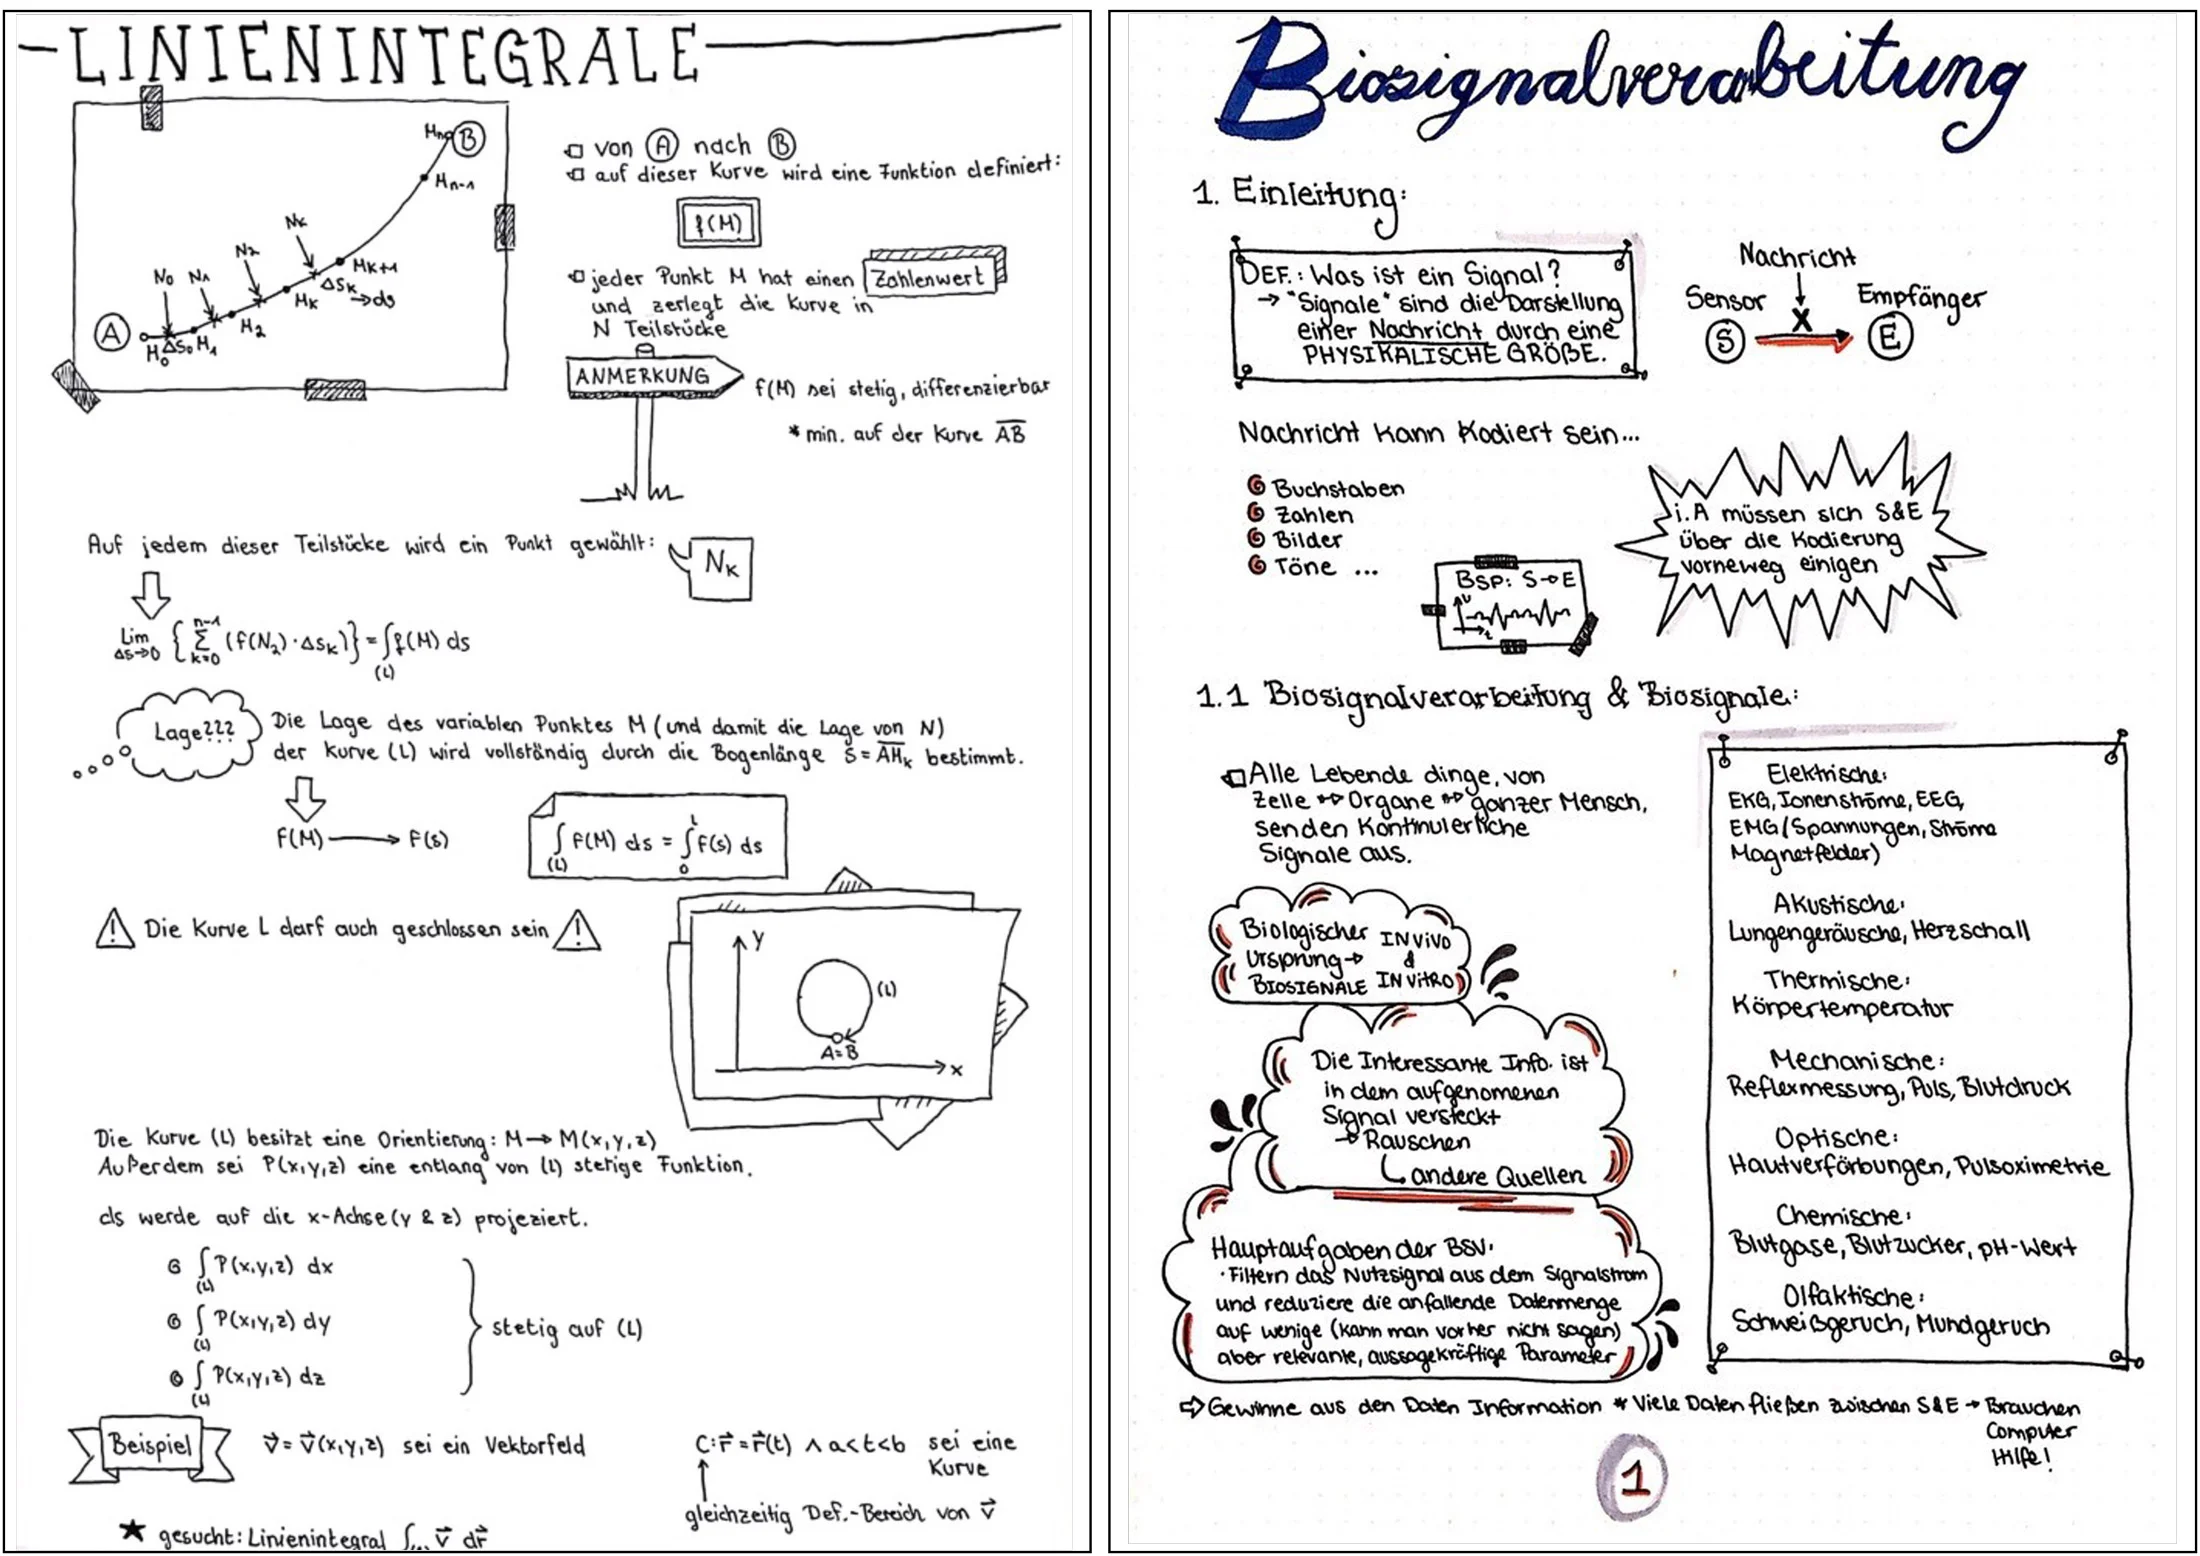 LINIENINTEGRALE
Mn
B
Mn-1
Nk
N2
N0 N1
Mk+1
Δsk → ds
Mk
M2
A
M0 Δs0 M1
von A nach B
auf dieser Kurve wird eine Funktion definiert:
f(M)
jeder Punkt M hat einen Zahlenwert
und zerlegt die Kurve in
N Teilstücke
ANMERKUNG
f(M) sei stetig, differenzierbar
* min. auf der Kurve A̅B̅
Auf jedem dieser Teilstücke wird ein Punkt gewählt: Nk
Lim Δs→0 { Σ k=0 n-1 (f(N2)·Δsk)} = ∫(L) f(M) ds
Lage???
Die Lage des variablen Punktes M (und damit die Lage von N)
der Kurve (L) wird vollständig durch die Bogenlänge S = A̅M̅k bestimmt.
F(M) → F(s)
∫(L) F(M) ds = ∫0 L F(s) ds
! Die Kurve L darf auch geschlossen sein !
y
(L)
A=B
x
Die Kurve (L) besitzt eine Orientierung: M → M(x,y,z)
Außerdem sei P(x,y,z) eine entlang von (L) stetige Funktion.
ds werde auf die x-Achse (y & z) projeziert.
∫(L) P(x,y,z) dx
∫(L) P(x,y,z) dy
∫(L) P(x,y,z) dz
stetig auf (L)
Beispiel
v⃗ = v⃗(x,y,z) sei ein Vektorfeld
C: r⃗ = r⃗(t) ∧ a<t<b sei eine
Kurve
gleichzeitig Def.-Bereich von v⃗
★ gesucht: Linienintegral ∫ v⃗ dr⃗
Biosignalverarbeitung
1. Einleitung:
DEF.: Was ist ein Signal?
→ "Signale" sind die Darstellung
einer Nachricht durch eine
PHYSIKALISCHE GRÖßE.
Nachricht
Sensor
Empfänger
S
X
E
Nachricht kann Kodiert sein...
Buchstaben
Zahlen
Bilder
Töne ...
BSP: S→E
U
t
i.A müssen sich S&E
über die Kodierung
vorneweg einigen
1.1 Biosignalverarbeitung & Biosignale:
Alle Lebende dinge, von
Zelle ↔ Organe ↔ ganzer Mensch,
senden Kontinuierliche
Signale aus.
Biologischer
Ursprung →
BIOSIGNALE
IN VIVO
&
IN VITRO
Die Interessante Info. ist
in dem aufgenomenen
Signal versteckt
→ Rauschen
↳ andere Quellen
Hauptaufgaben der BSV:
· Filtern das Nutzsignal aus dem Signalstrom
und reduziere die anfallende Datenmenge
auf wenige (kann man vorher nicht sagen)
aber relevante, aussagekräftige Parameter
Elektrische:
EKG, Ionenströme, EEG,
EMG (Spannungen, Ströme
Magnetfelder)
Akustische:
Lungengeräusche, Herzschall
Thermische:
Körpertemperatur
Mechanische:
Reflexmessung, Puls, Blutdruck
Optische:
Hautverfärbungen, Pulsoximetrie
Chemische:
Blutgase, Blutzucker, pH-Wert
Olfaktische:
Schweißgeruch, Mundgeruch
⇒ Gewinne aus den Daten Information * Viele Daten fließen zwischen S&E → Brauchen
Computer
Hilfe!
1